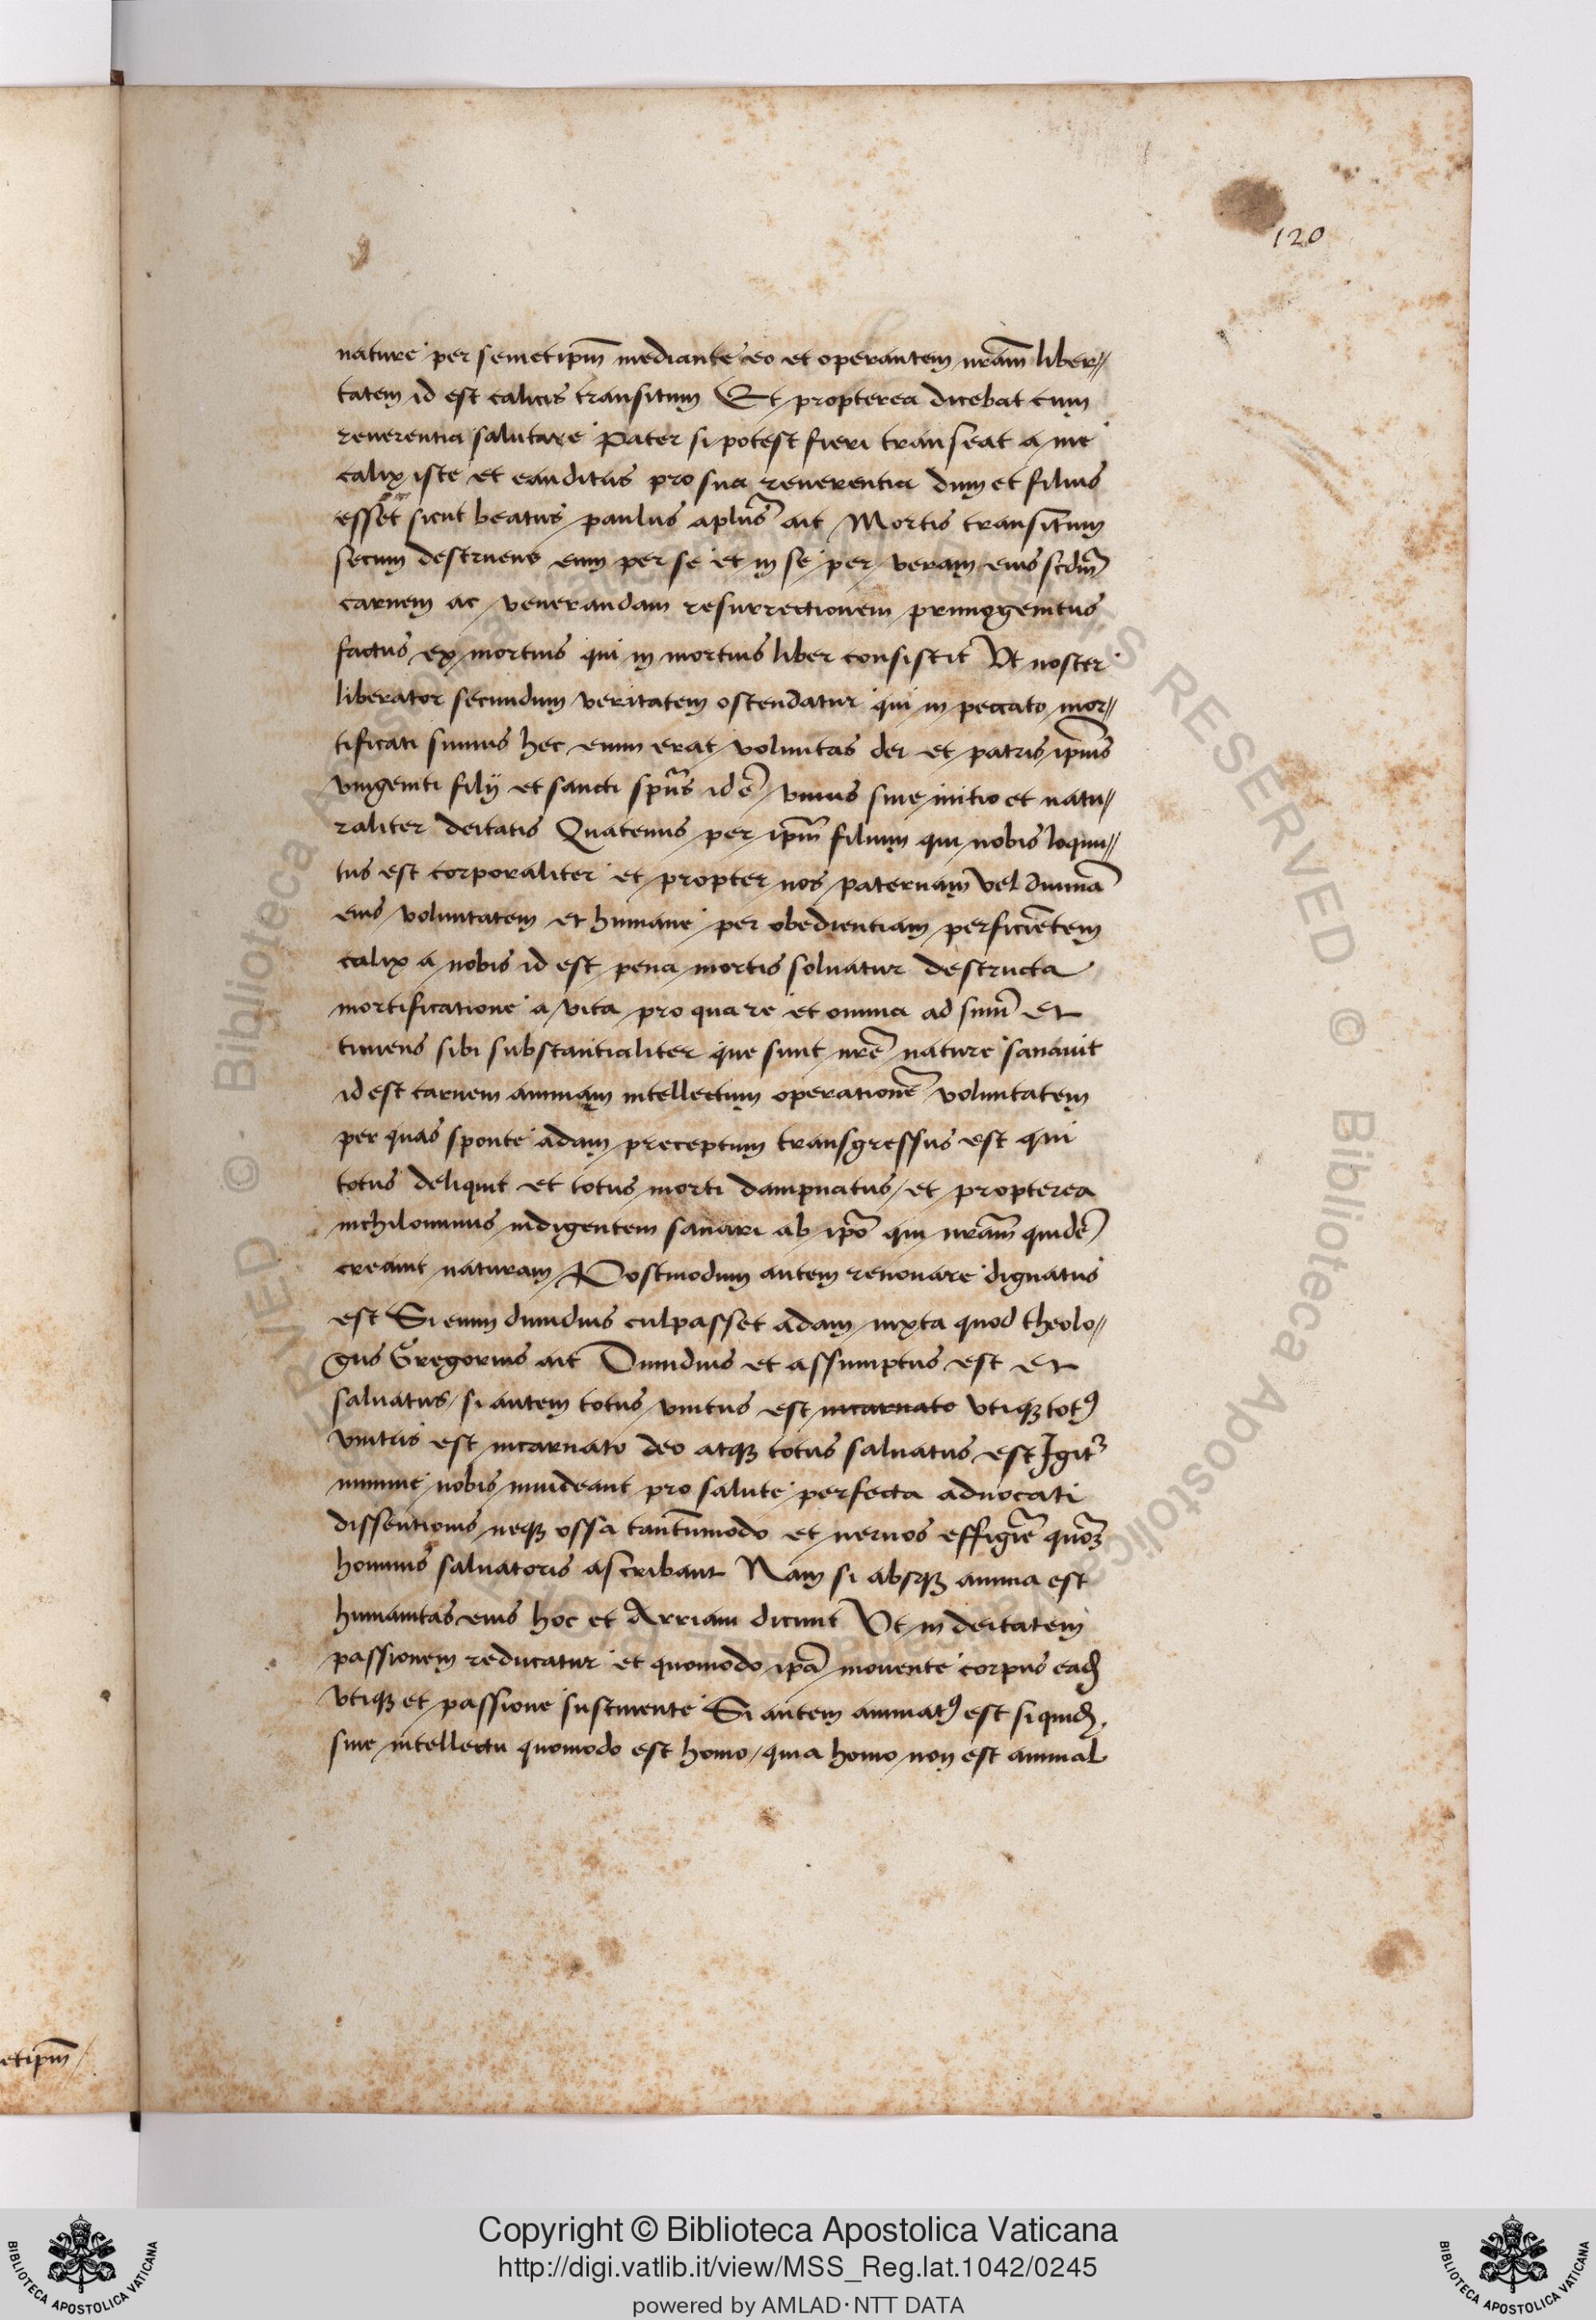 120
nature per semetipm̄ mediante eo et operantem nr̄am liber//
tatem id est calicis transitum Et propterea dicebat cum
reuerentia salutare Pater si potest fieri transeat a me
calix iste et exauditus pro sua reuerentia dum et filius
esset sicut beatus paulus aplūs ait Mortis transitum
secum destruens eum per se et in se per veram eius scdm̄
carnem ac venerandam resurrectionem primogenitus
factus ex mortuis qui in mortuis liber consistit Vt noster
liberator secundum veritatem ostendatur qui in peccato mor//
tificati sumus hec enim erat voluntas dei et patris ipīus
vnigeniti filij et sancti spūs id ē vnius sine initio et natu//
raliter deitatis Quatenus per ipm̄ filium qui nobis loqui//
tus est corporaliter et propter nos paternam vel diuinā
eius voluntatem et humane per obedientiam perficiētem
calix a nobis id est pena mortis soluatur destructa
mortificatione a vita pro qua re et omnia ad sum̄ et
timens sibi substantialiter que sunt nrē nature sanauit
id est carnem animam intellectum operationē voluntatem
per quas sponte adam preceptum transgressus est qui
totus deliquit et totus morti dampnatus / et propterea
nichilominus indigentem sanari ab ipō qui nrām quidē
creauit naturam Postmodum autem renouare dignatus
est Si enim dimidius culpasset adam iuxta quod theolo//
gus Gregorius ait Dimidius et assumptus est et
saluatus / si autem totus vnitus est incarnato vtiqꝫ totꝰ
vnitus est incarnato deo atqꝫ totus saluatus est Igitr̄
minime nobis inuideant pro salute perfecta aduocati
dissentionis neqꝫ ossa tantūmodo et neruos effigiē
hominis saluatoris ascribant Nam si absqꝫ anima est
humanitas eius hoc et Arriani dicunt Vt in deitatem
passionem reducatur et quomodo ipā mouente corpus
vtiqꝫ et passione sustinente Si autem animatꝰ est siquid
sine intellectu quomodo est homo / quia homo non est animal
etipm̄ /
Copyright © Biblioteca Apostolica Vaticana
http://digi.vatlib.it/view/MSS_Reg.lat.1042/0245
powered by AMLAD·NTT DATA
BIBLIOTECA APOSTOLICA VATICANA
BIBLIOTECA APOSTOLICA VATICANA